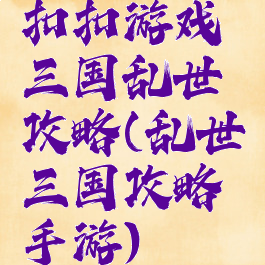 扣扣游戏
三国乱世
攻略(乱世
三国攻略
手游)